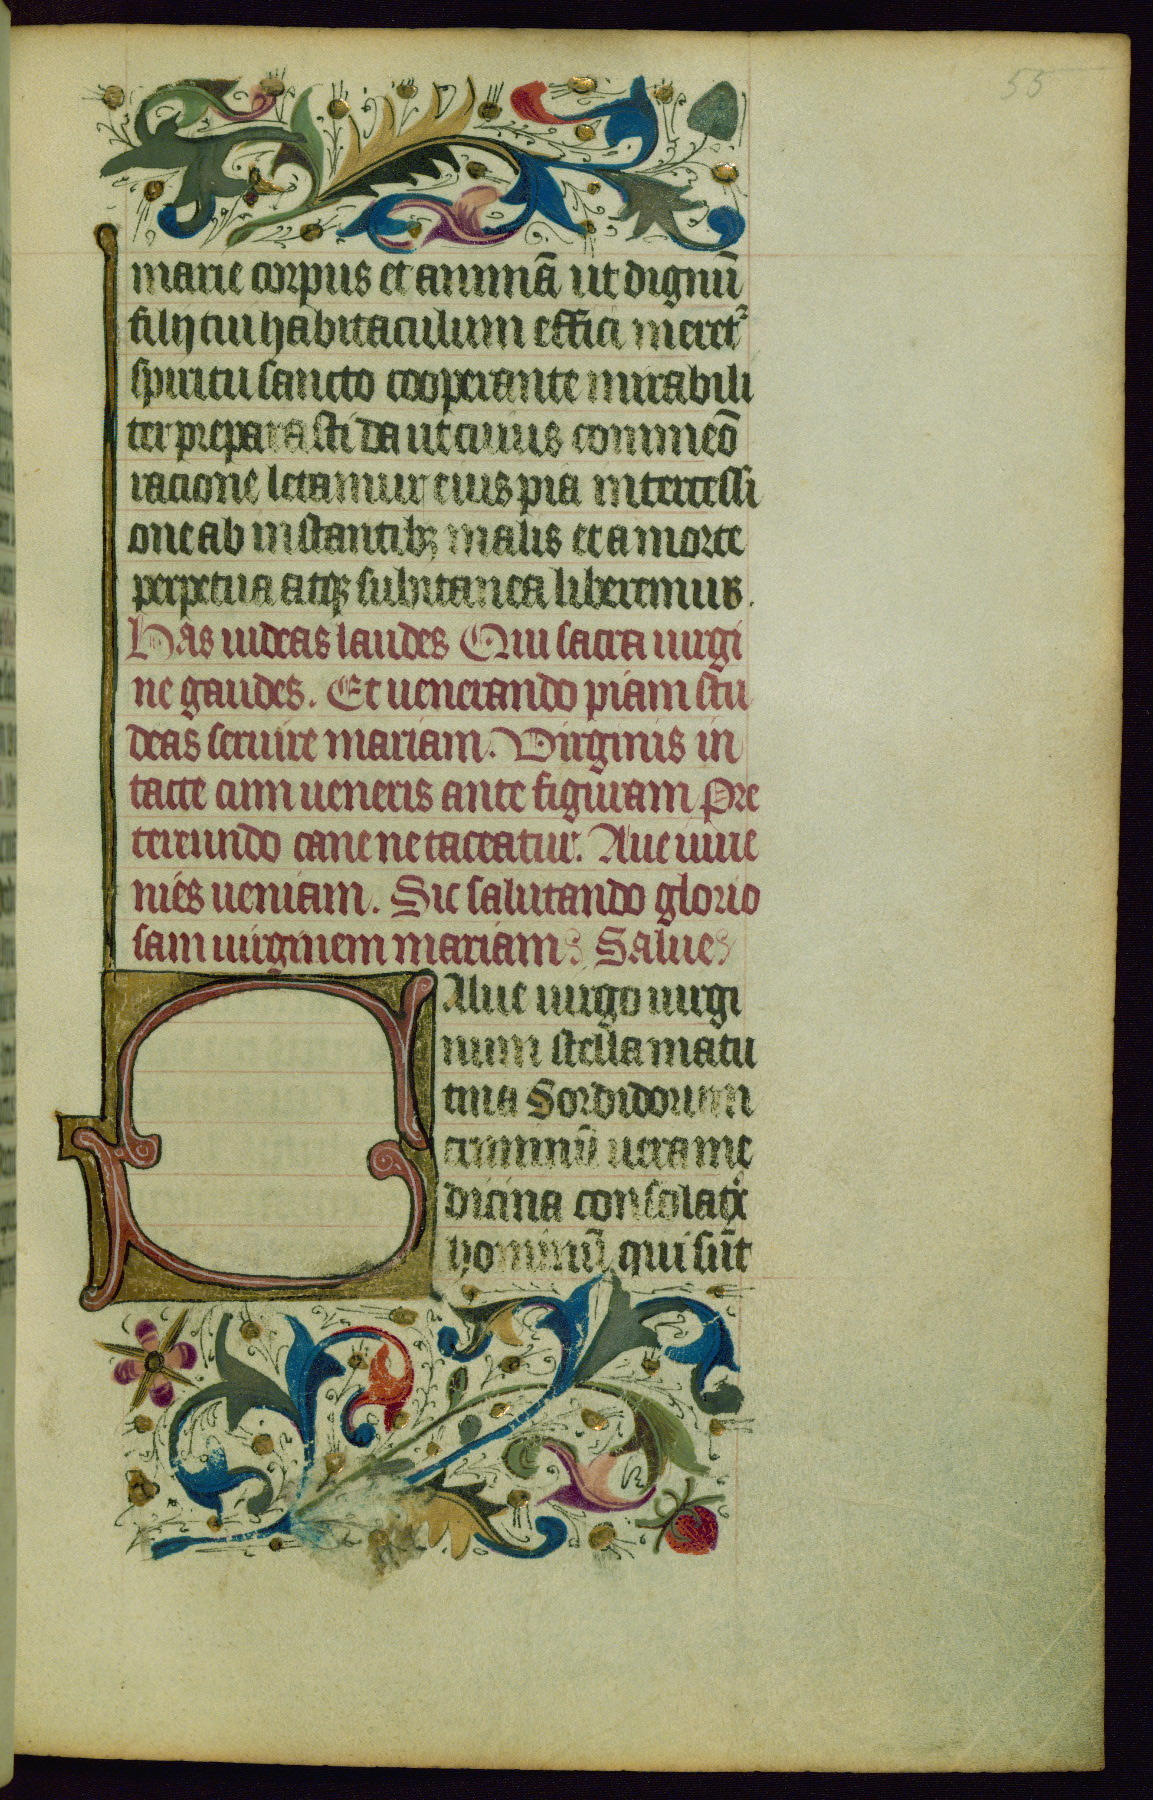 55
marie corpus et animā ut dignū
filij tui habitaculum effici meret²
spiritu sancto cooperante mirabili
ter preparasti da ut cuius commeō
racione letamur eius pia intercessi
one ab instantibꝫ malis et a morte
perpetua atqꝫ subitanea liberemur.
Has uideas laudes Qui sacra uirgi
ne gaudes. Et uenerando piam stu
deas seruire mariam. Virginis in
tacte cum ueneris ante figuram Pre
tereundo cane ne taceatur. Aue inue
nies ueniam. Sic salutando glorio
sam uirginem mariam Salue
Alue uirgo uirgi
num stella matu
tina Sordidorum
criminū uera me
dicina consolatͥx
hominū qui sūt